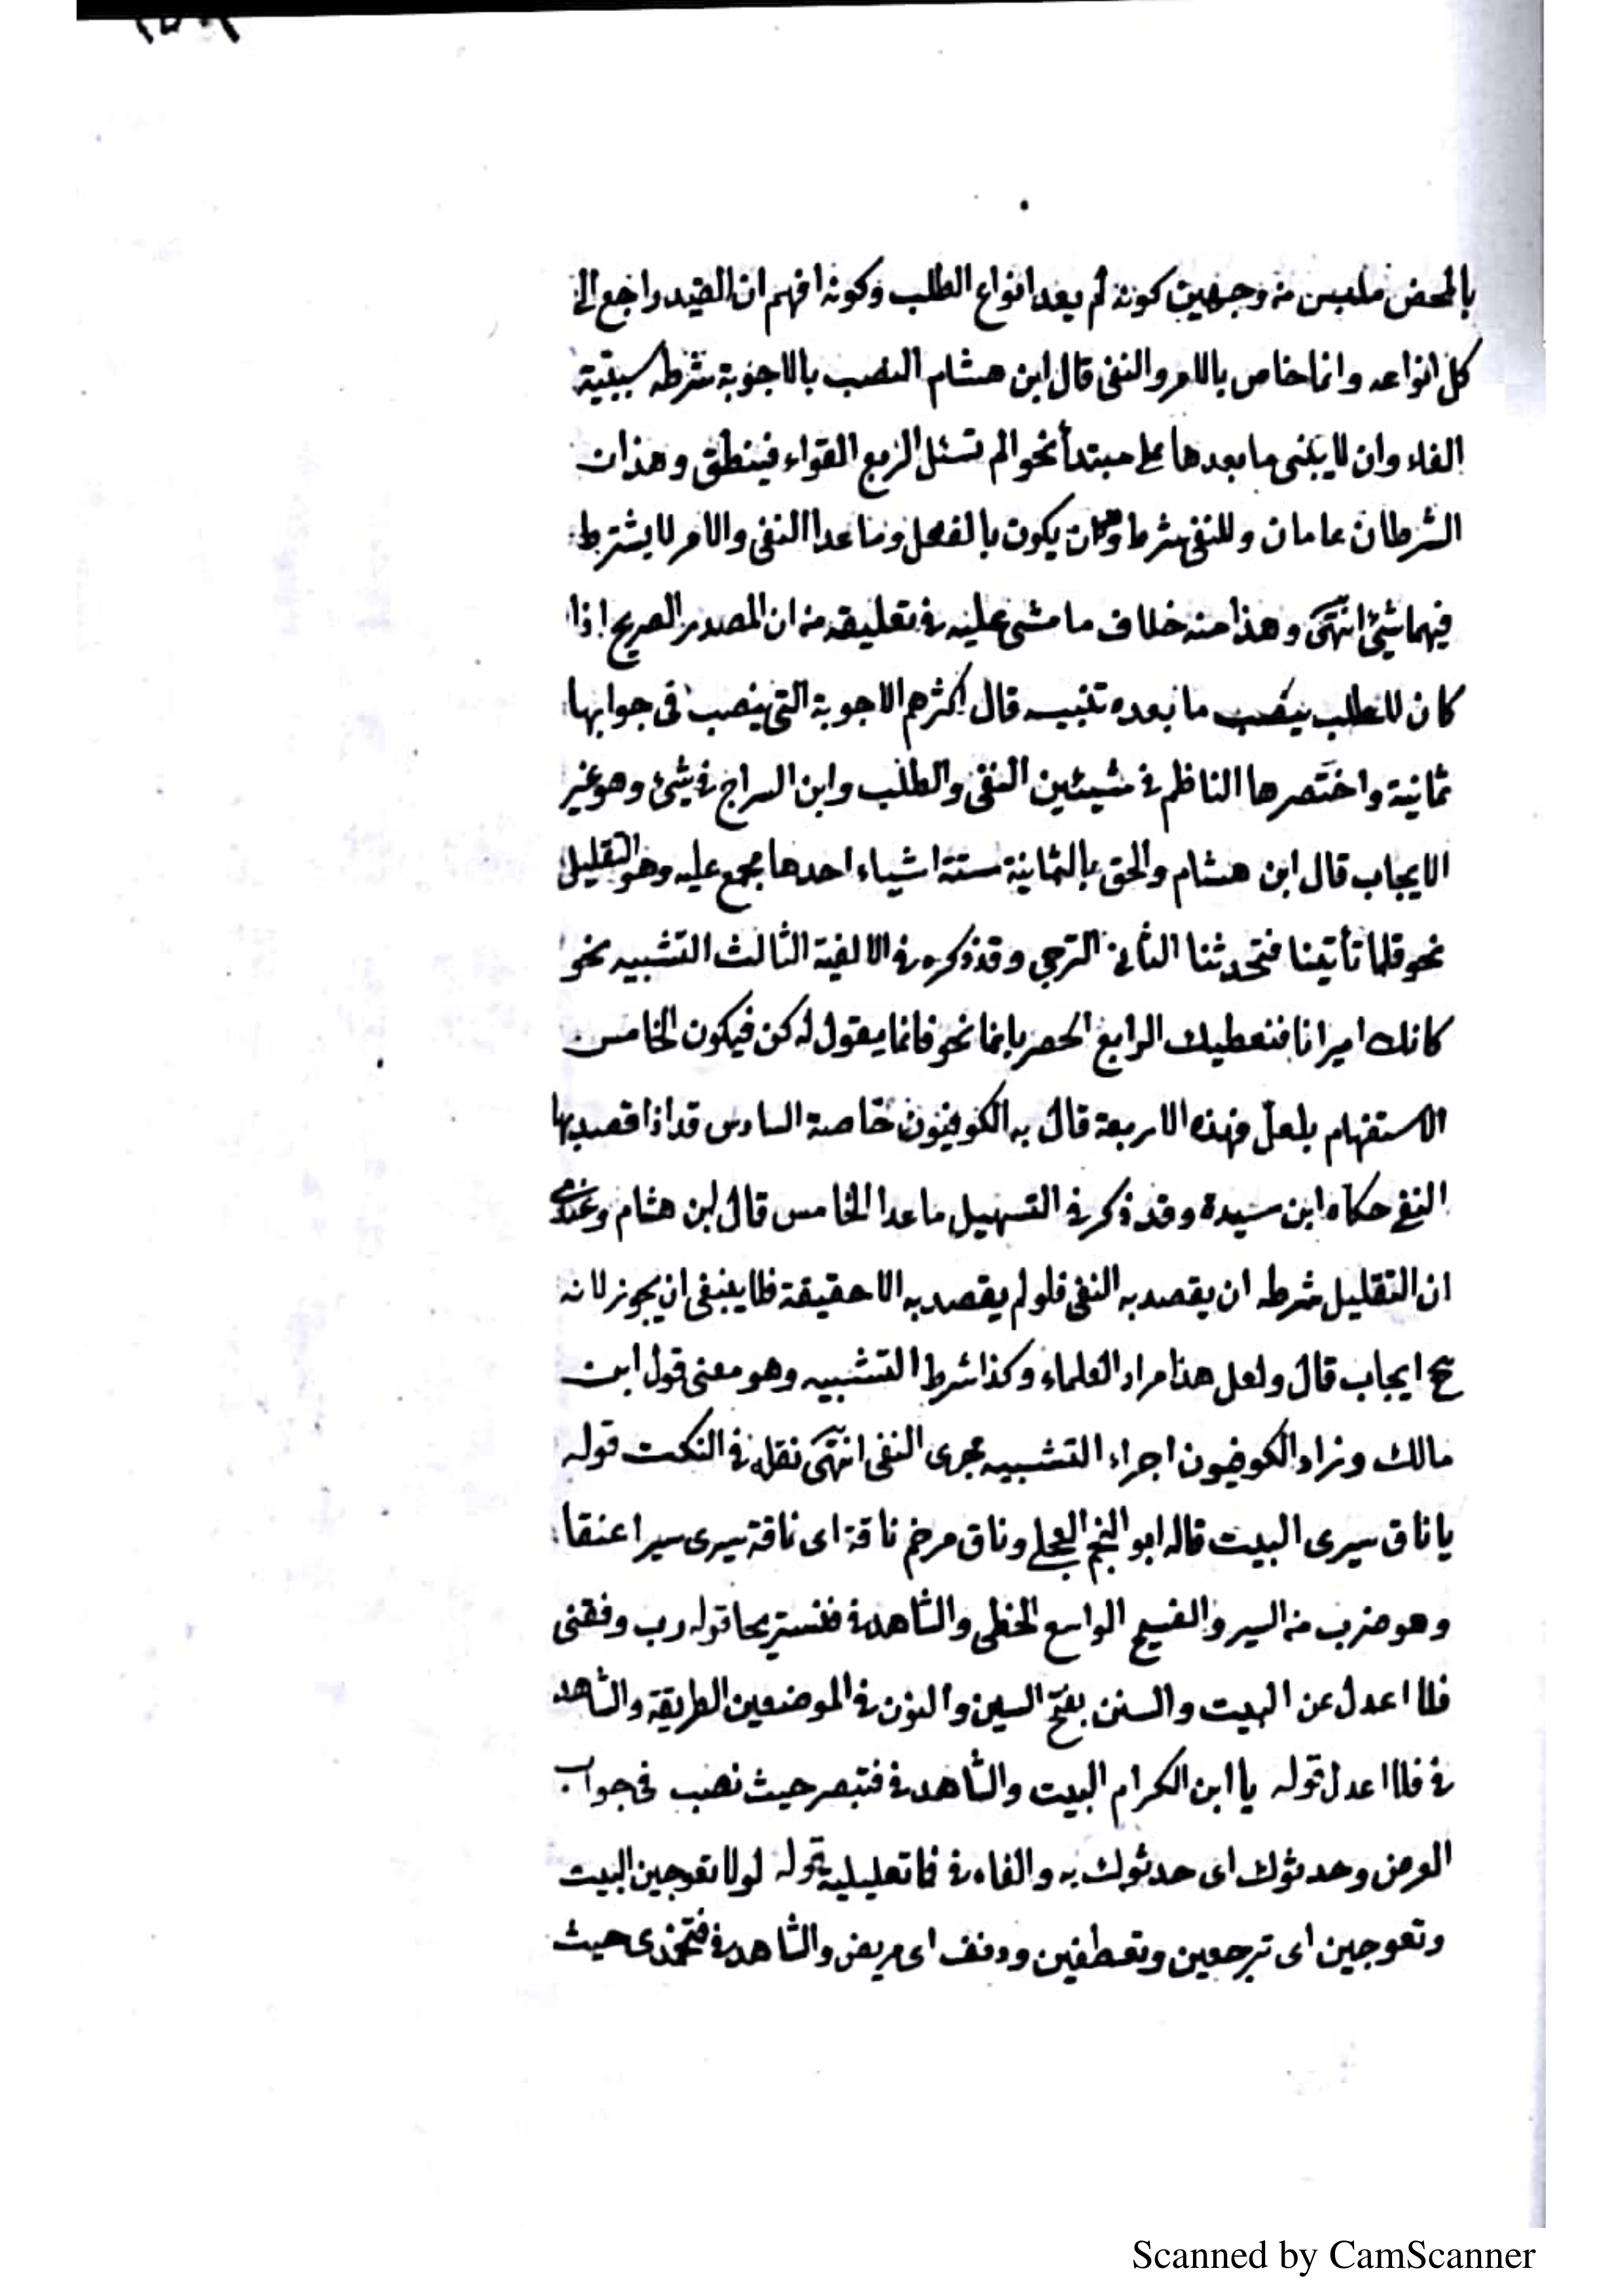 بالمحض ملبس من وجهين كونه لم يعد انواع الطلب وكونه افهم ان القيد راجع الى
كل انواعه وانما خاص بالامر والنفى قال ابن هشام النصب بالاجوبة شرطه سببية
الفاء وان لا يبنى ما بعدها على مبتدأ نحو الم تسئل الربع القواء فينطق وهذان
الشرطان عامان وللنفى شرط وهو ان يكون بالفعل وما عدا النفى والامر لا يشترط
فيهما شئ انتهى وهذا منه خلاف ما مشى عليه فى تعليقه من ان المصدر الصريح اذا
كان للطلب ينصب ما بعده تنبيه قال اكثرهم الاجوبة التى ينصب فى جوابها
ثمانية واختصرها الناظم فى شيئين النفى والطلب وابن السراج فى شئ وهو غير
الايجاب قال ابن هشام والحق بالثمانية ستة اشياء احدها مجمع عليه وهو التقليل
نحو قلما تأتينا فتحدثنا الثانى الترجى وقد ذكره فى الالفية الثالث التشبيه نحو
كانك اميرانا فنعطيك الرابع الحصر بانما نحو فانما يقول له كن فيكون الخامس
الاستفهام بلعل فهذه الاربعة قال به الكوفيون خاصة السادس قد اذا قصد بها
النفى حكاه ابن سيدة وقد ذكر فى التسهيل ما عدا الخامس قال ابن هشام وعندى
ان التقليل شرطه ان يقصد به النفى فلو لم يقصد به الا حقيقة فلا ينبغى ان يجوز لانه
ح ايجاب قال ولعل هذا مراد العلماء وكذا شرط التشبيه وهو معنى قول ابن
مالك وزاد الكوفيون اجراء التشبيه مجرى النفى انتهى نقله فى النكت قوله
يا ناق سيرى البيت قاله ابو النجم العجلى وناق مرخم ناقة اى ناقة سيرى سيرا عنقا
وهو ضرب من السير والفسيح الواسع الخطى والشاهد فى فنستريحا قوله رب وفقنى
فلا اعدل عن البيت والسنن بفتح السين والنون فى الموضعين الطريقة والشاهد
فى فلا اعدل قوله يا ابن الكرام البيت والشاهد فى فتبصر حيث نصب فى جواب
العرض وحدثوك اى حدثوك به والفاء فى فما تعليلية قوله لولا تعوجين البيت
وتعوجين اى ترجعين وتعطفين ودنف اى مريض والشاهد فى فتخمدى حيث
Scanned by CamScanner